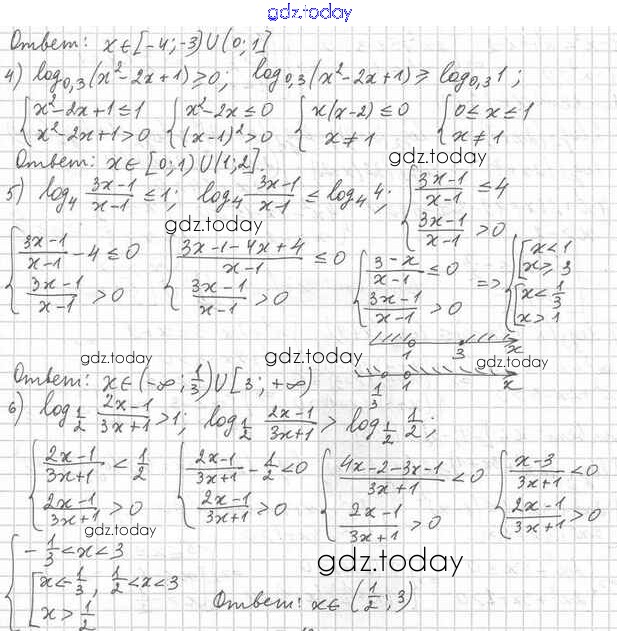 gdz.today
Ответ: x∈[-4;-3)∪(0;1]
4) log₀,₃(x²-2x+1)≥0; log₀,₃(x²-2x+1)≥log₀,₃1;
{x²-2x+1≤1 {x²-2x≤0 {x(x-2)≤0 {0≤x≤1
{x²-2x+1>0 {(x-1)²>0 {x≠1 {x≠1
Ответ: x∈[0;1)∪(1;2].
gdz.today
5) log₄ (3x-1)/(x-1) ≤1; log₄ (3x-1)/(x-1) ≤ log₄4; {(3x-1)/(x-1) ≤4
{(3x-1)/(x-1) >0
gdz.today
{(3x-1)/(x-1) -4≤0 {(3x-1-4x+4)/(x-1) ≤0 {(3-x)/(x-1) ≤0 => {[x<1
[x≥3
{(3x-1)/(x-1) >0 {(3x-1)/(x-1) >0 {(3x-1)/(x-1) >0 {[x<1/3
[x>1
1 3 x
gdz.today gdz.today gdz.today
1/3 1 x
Ответ: x∈(-∞;1/3)∪[3;+∞)
6) log₁/₂ (2x-1)/(3x+1) >1; log₁/₂ (2x-1)/(3x+1) > log₁/₂ 1/2;
{(2x-1)/(3x+1) <1/2 {(2x-1)/(3x+1) -1/2<0 {(4x-2-3x-1)/(3x+1) <0 {(x-3)/(3x+1) <0
{(2x-1)/(3x+1) >0 {(2x-1)/(3x+1) >0 {(2x-1)/(3x+1) >0 {(2x-1)/(3x+1) >0
gdz.today
gdz.today
{-1/3<x<3
{[x<-1/3, 1/2<x<3
[x>1/2
Ответ: x∈(1/2;3)